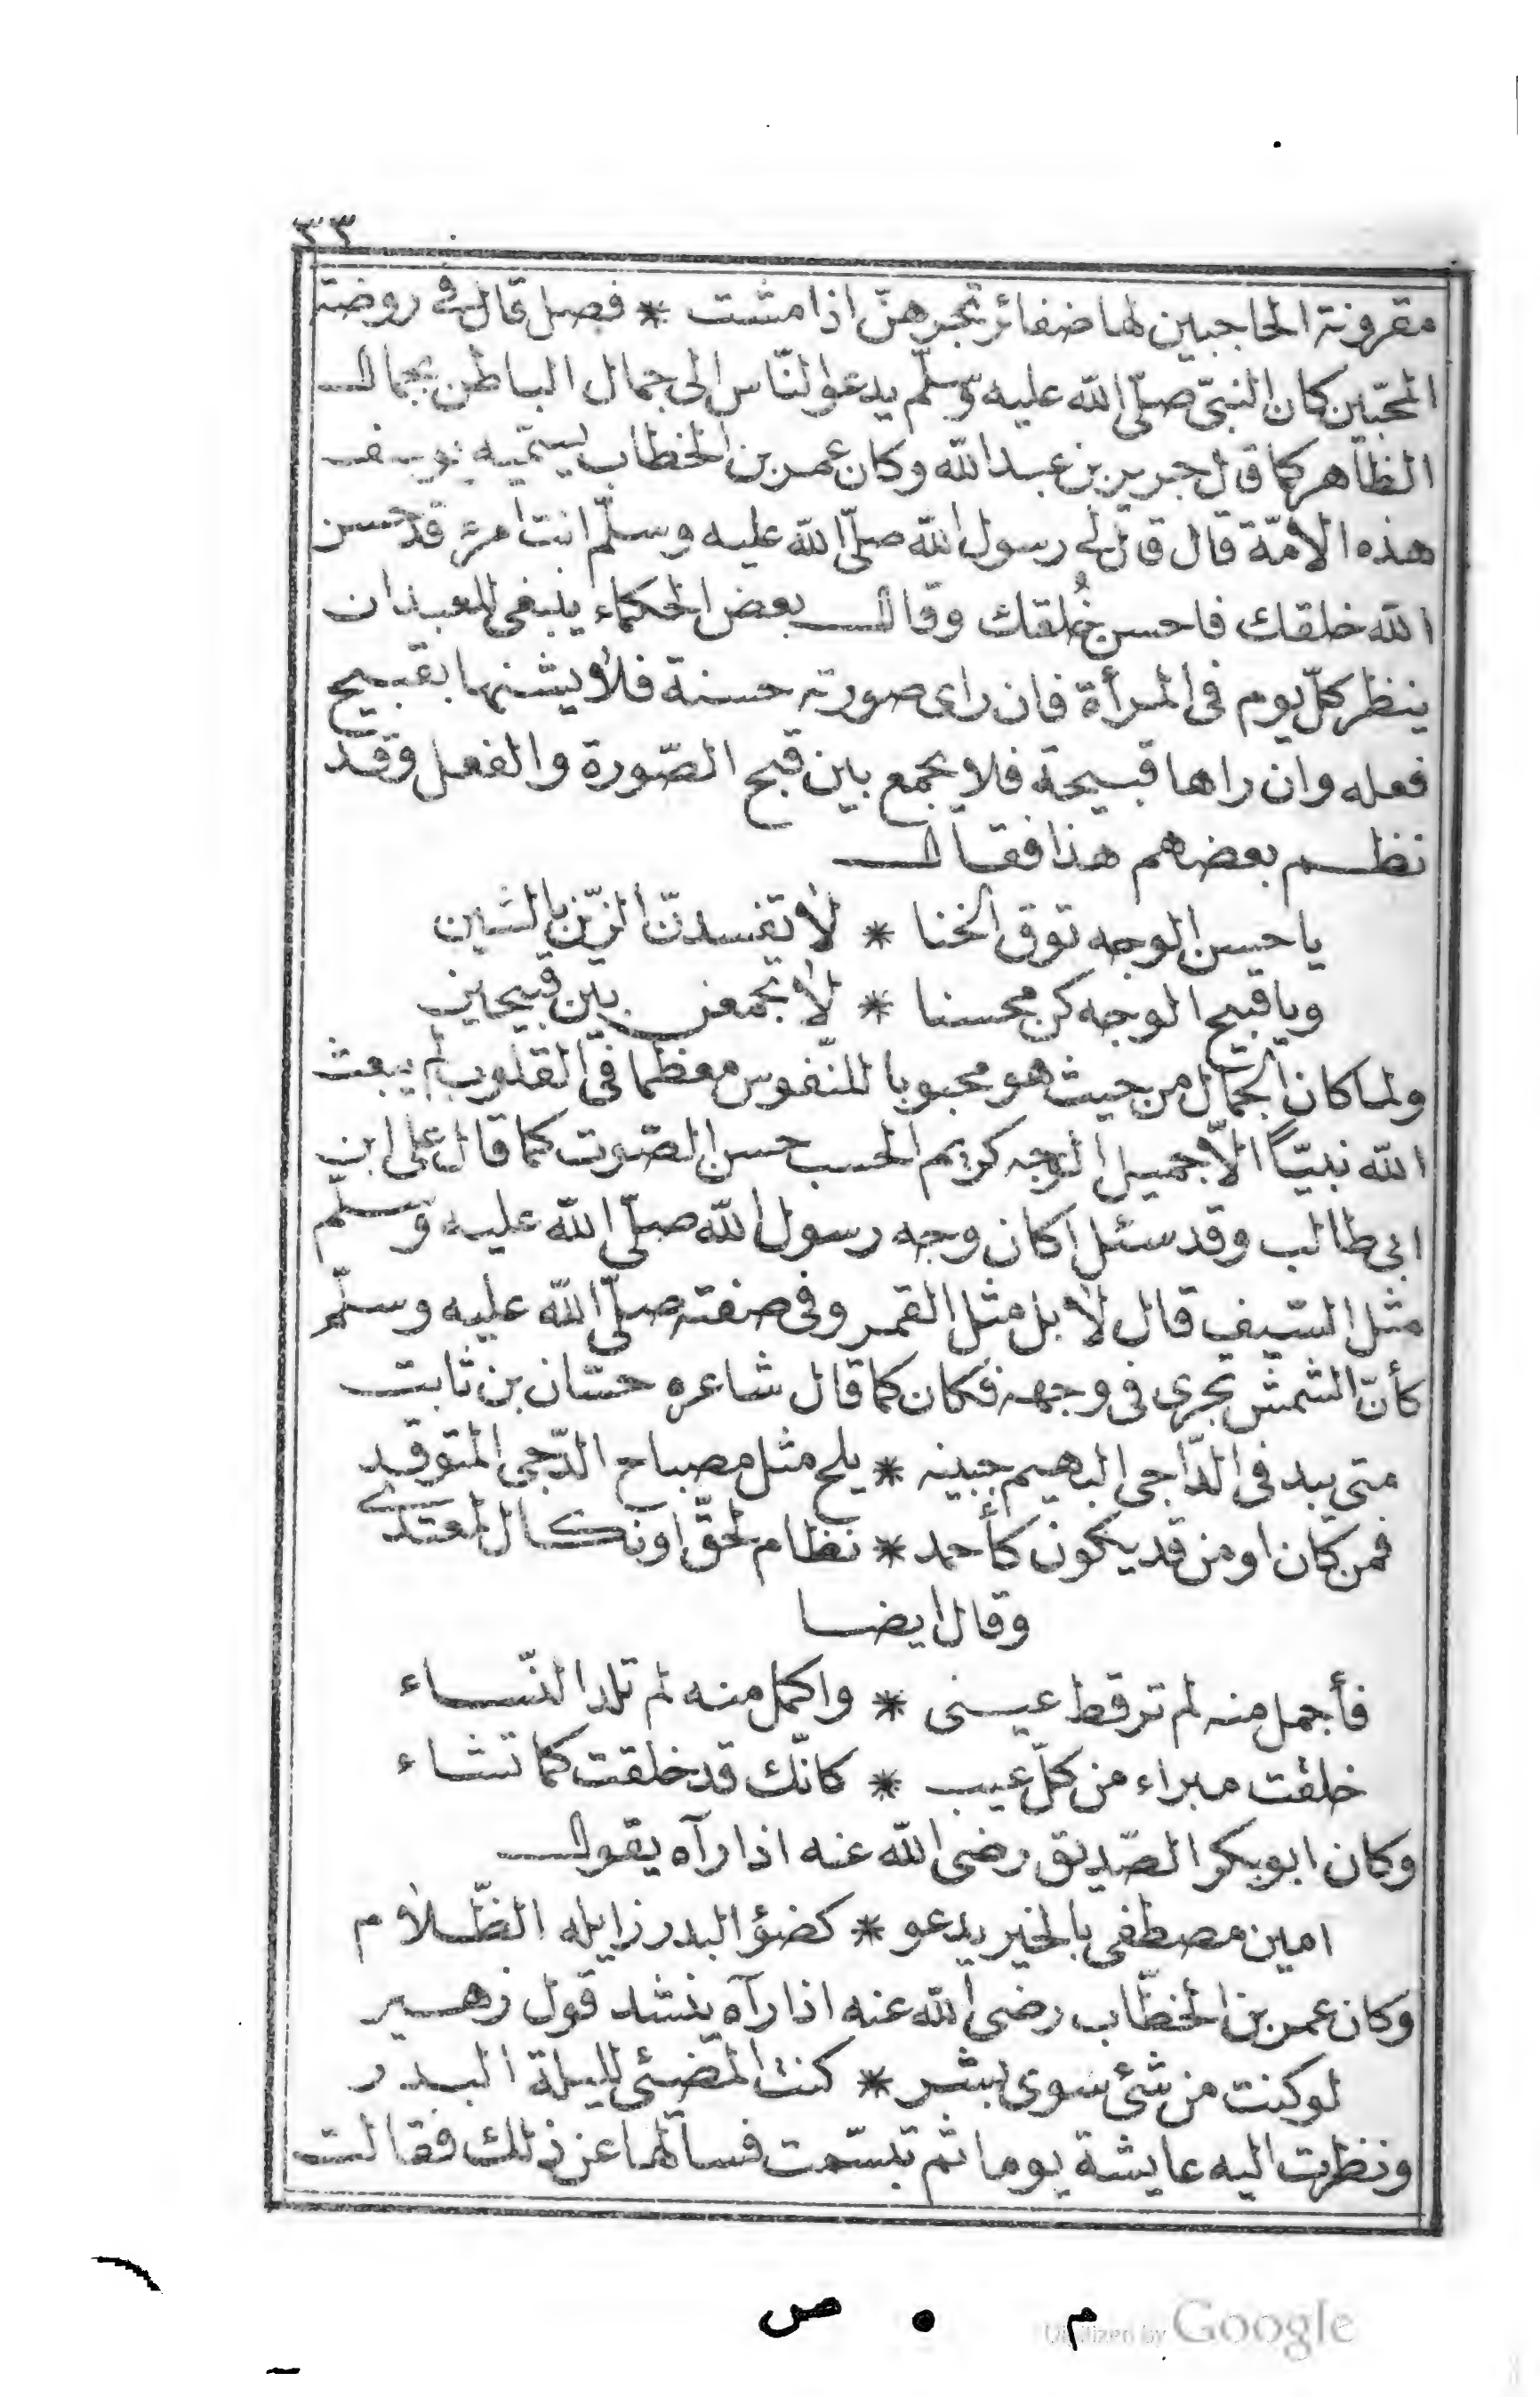 ٣٣
مقرونة الحاجبين لها ضفائر تجرهنّ اذا مشت * فصل قال فى روضة
المحبّين كان النبىّ صلّى الله عليه وسلّم يدعو النّاس الى جمال الباطن بجمال
الظاهر كما قال جرير بن عبد الله وكان عمر بن الخطاب يسمّيه يوسف
هذه الأمّة قال قال لى رسول الله صلّى الله عليه وسلّم انت امرء قد حسن
الله خلقك فاحسن خُلقك وقال بعض الحكماء ينبغى للعبد ان
ينظر كلّ يوم فى المرأة فان راى صورته حسنة فلا يشنها بقبيح
فعله وان راها قبيحة فلا يجمع بين قبح الصّورة والفعل وقد
نظم بعضهم هذا فقال
يا حسن الوجه توق الخنا * لا تفسدنّ الزّين بالشين
ويا قبيح الوجه كن محسنا * لا تجمعن بين قبيحين
ولما كان الجمال من حيث هو محبوبا للنّفوس معظما فى القلوب لم يبعث
الله نبيّاً الّا جميل الوجه كريم الحسب حسن الصّوت كما قال على ابن
ابى طالب وقد سئل اكان وجه رسول الله صلّى الله عليه وسلّم
مثل السّيف قال لا بل مثل القمر وفى صفته صلّى الله عليه وسلّم
كأنّ الشمش تجرى فى وجهه فكان كما قال شاعره حسّان بن ثابت
متى يبد فى الدّاجى البهيم جبينه * يلح مثل مصباح الدّجى المتوقد
فمن كان او من قد يكون كأحمد * نظام لحقّ او نكال لمعتدى
وقال ايضا
فأجمل منه لم ترقط عينى * واكمل منه لم تلد النّساء
خلقت مبراء من كلّ عيب * كانّك قد خلقت كما تشاء
وكان ابو بكر الصّديق رضى الله عنه اذا رآه يقول
امين مصطفى بالخير يدعو * كضؤ البدر زايله الظّلام
وكان عمر بن الخطّاب رضى الله عنه اذا رآه ينشد قول زهير
لو كنت من شئ سوى بشر * كنت المضئى لليلة البدر
ونظرت اليه عايشة يوما ثم تبسّمت فسألها عن ذلك فقالت
م • ص
Digitized by Google